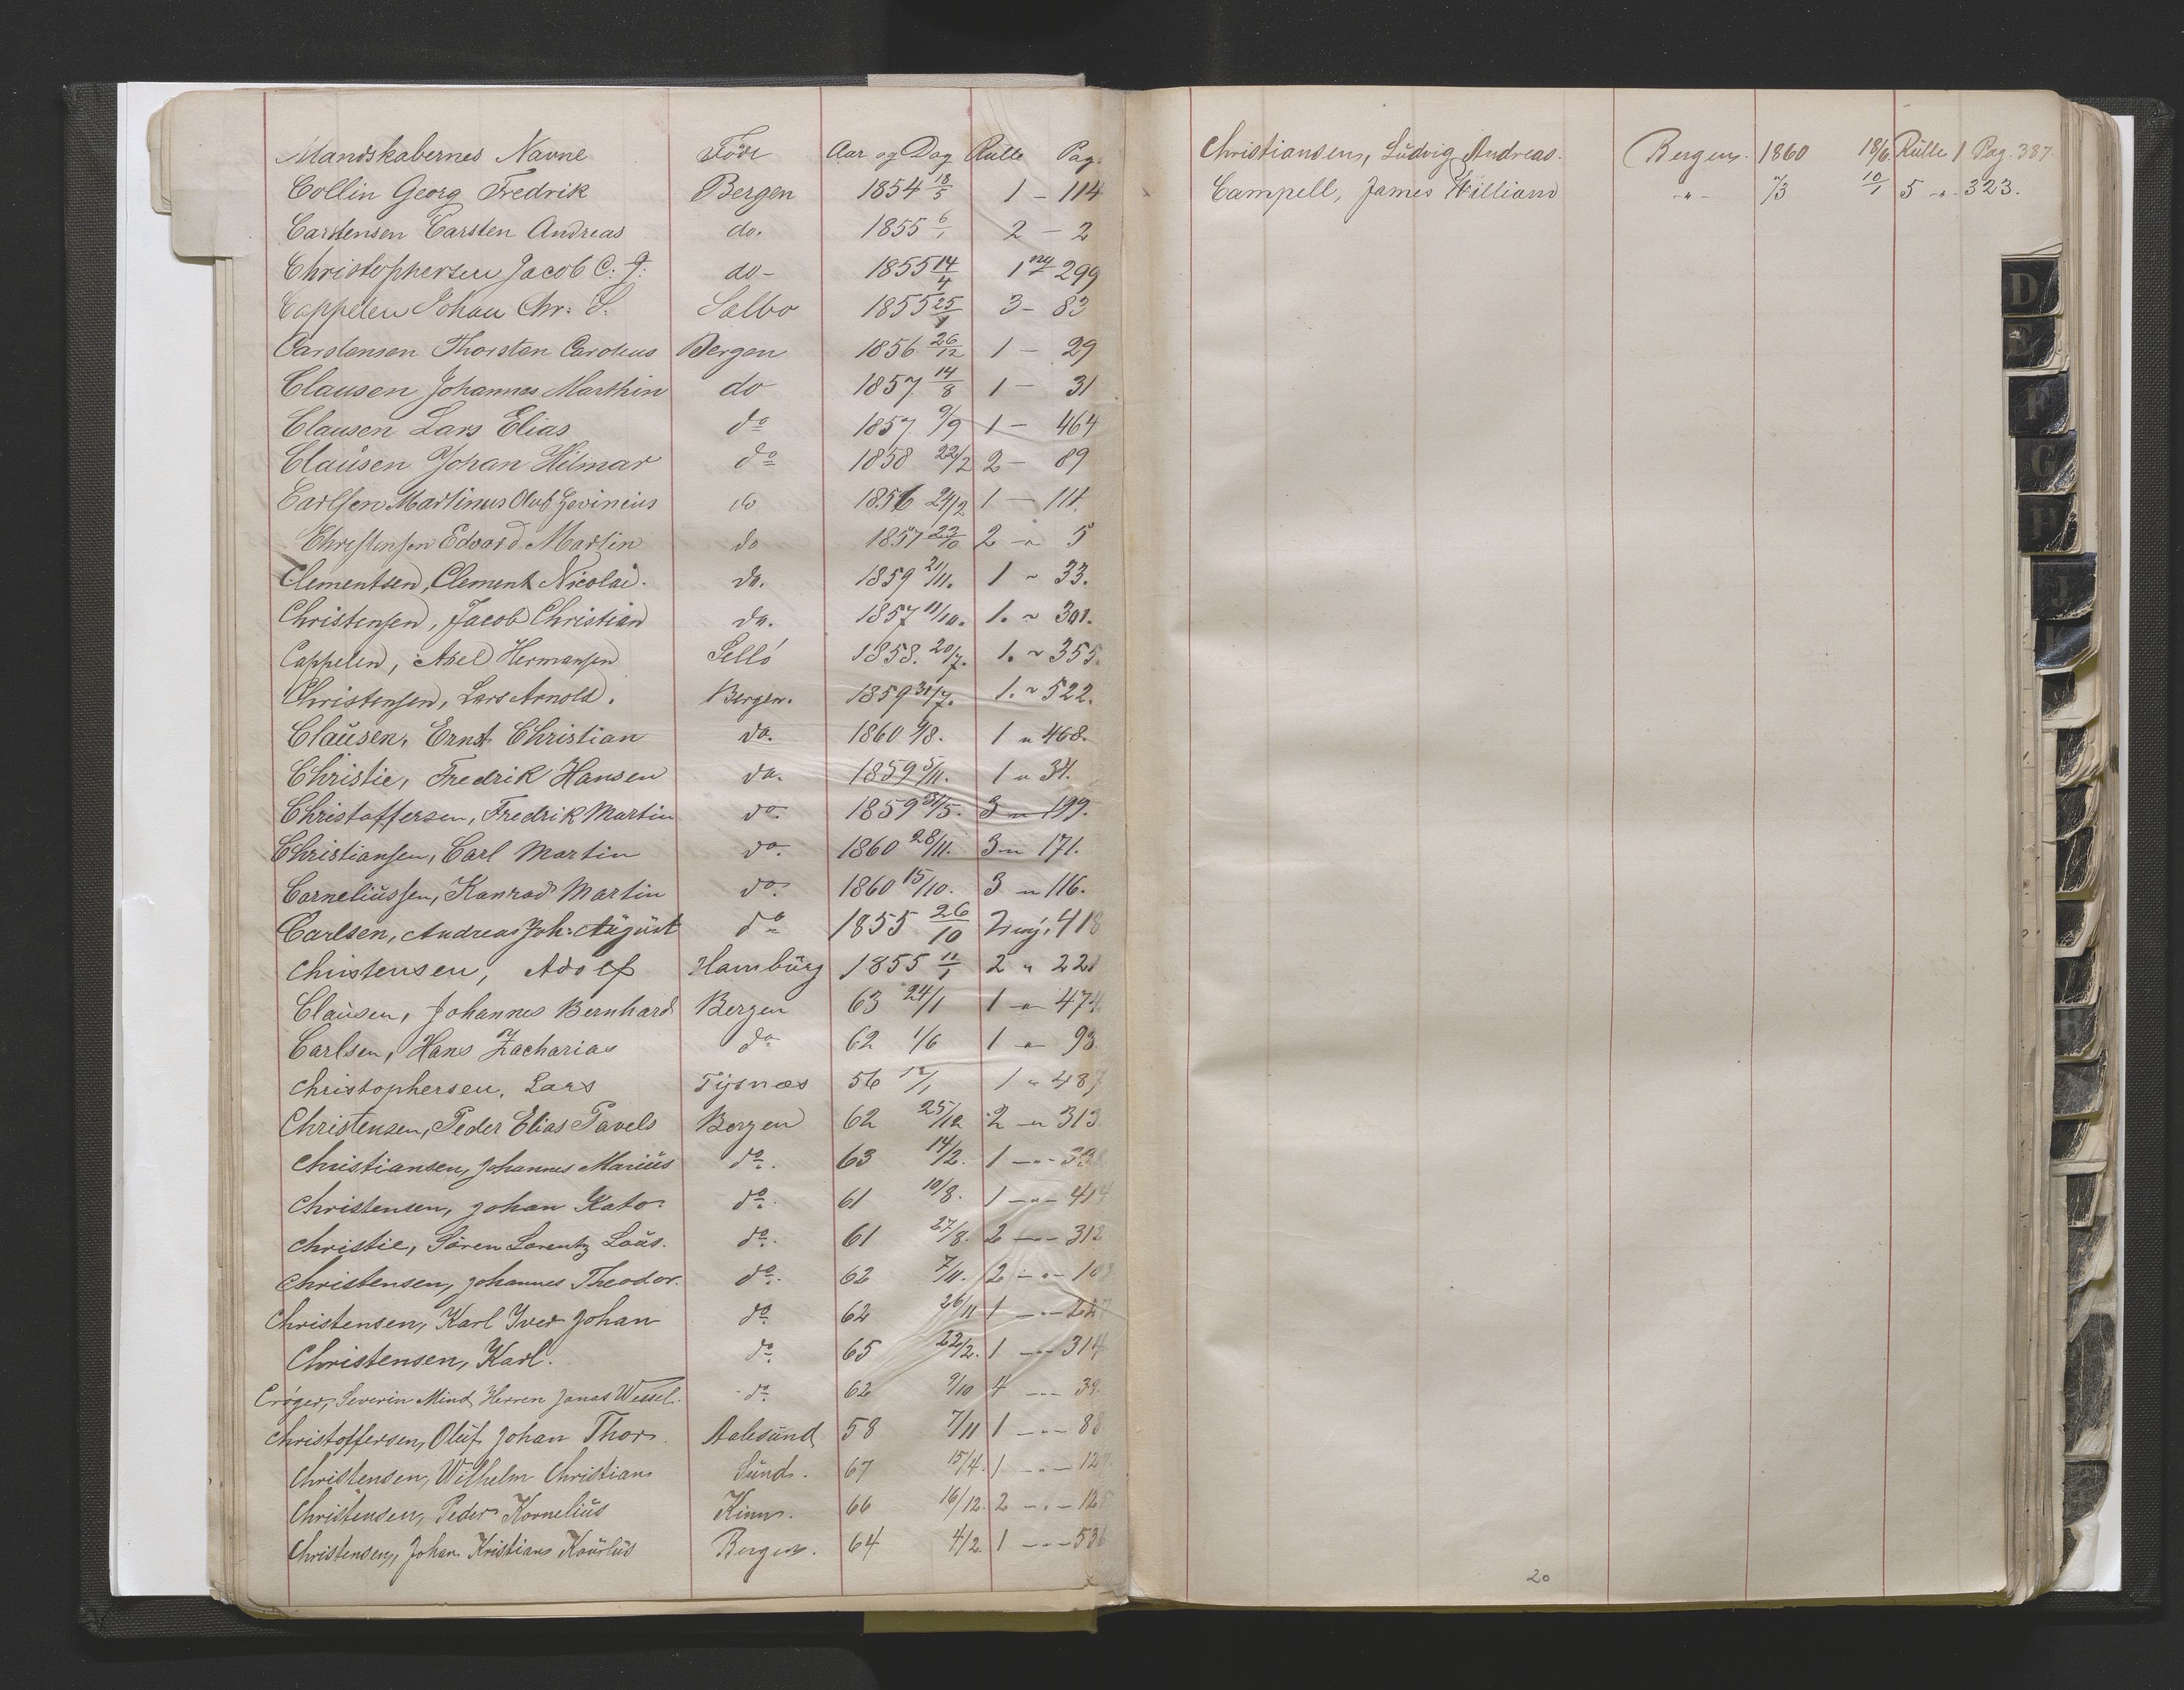 Mandskabernes Navne Föde Aar og Dag Rulle Pag.
Collin Georg Fredrik Bergen 1854 18/5 1 - 114
Carstensen Carsten Andreas do. 1855 6/1 2 - 2
Christophersen Jacob C. J. do- 1855 14/4 1 ny 299
Cappelen Johan Chr. S. Selbo 1855 25/ 3 - 83
Carstensen Thorsten Carolius Bergen 1856 26/12 1 - 29
Clausen Johannes Marthin do 1857 14/8 1 - 31
Clausen Lars Elias do 1857 9/9 1 - 464
Claüsen Johan Hilmar do 1858 22/2 2 - 89
Carlsen Martinus Oluf Gevinius do 1856 24/2 1 - 111
Christensen Edvard Martin do 1857 22/10 2 " 5
Clementsen, Clement Nicolai. do. 1859 21/11. 1 ~ 33.
Christensen, Jacob Christian do. 1857 11/10. 1. ~ 301.
Cappelen, Axel Hermansen Selló 1858. 20/7. 1. ~ 355.
Christensen, Lars Arnold. Bergen. 1859 31/7. 1. ~ 522.
Claüsen, Ernst Christian do. 1860 9/8. 1 " 468.
Christie, Fredrik Hansen do. 1859 5/11. 1 " 34.
Christoffersen, Fredrik Martin do. 1859 31/5. 3 " 199.
Christiansen, Carl Martin do. 1860 28/11. 3 " 171.
Corneliüssen, Konrad Martin do. 1860 15/10. 3 " 116.
Carlsen, Andreas Joh: Aügüst do 1855 26/10 2 ny. 418
Christensen, Adolf Hambürg 1855 11/1 2 " 221
Claüsen, Johannes Bernhard Bergen 63 24/1 1 " 474
Carlsen, Hans Zacharias do 62 1/6 1 " 93.
Christophersen, Lars Tysnæs 56 12/1 1 " 487
Christensen, Peder Elias Pavels Bergen 62 25/12 2 " 313
Christiansen, Johannes Mariüs do. 63 14/2. 1 -"- 338
Christensen, Johan Kato. do. 61 10/8. 1 -"- 414
Christie, Sören Lorentz Loüs. do. 61 27/8. 2 -"- 312
Christensen, Johannes Theodor. do. 62 7/11. 2 -"- 103
Christensen, Karl Iver Johan do. 62 26/11 1 -"- 247
Christensen, Karl. do. 65 22/2. 1 -"- 314
Cröger, Severin Mind Herren Jonas Wessel. do. 62 9/10 4 -"- 39.
Christoffersen, Olüf Johan Thor. Aalesünd 58 7/11 1 -"- 88
Christensen, Wilhelm Christian Sünd. 67 15/4. 1 -"- 127
Christensen, Peder Korneliüs Kinn. 66 16/12. 2 -"- 125
Christensen, Johan Kristian Koürliüs Bergen. 64 4/2. 1 -"- 536
Christiansen, Lüdvig Andreas. Bergen. 1860 18/6. Rülle 1 Pag. 387.
Campell, James William -"- 73 10/1 5 -"- 323.
20
D
E
F
G
H
J
K
R